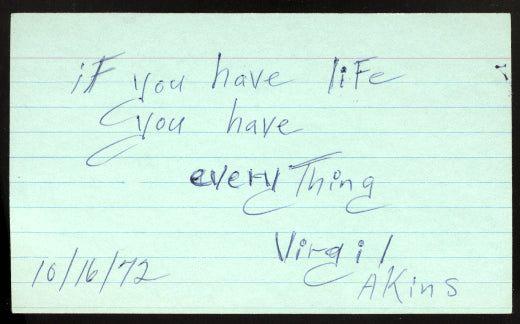 if you have life
you have
everyThing
Virgil
AKins
10/16/72